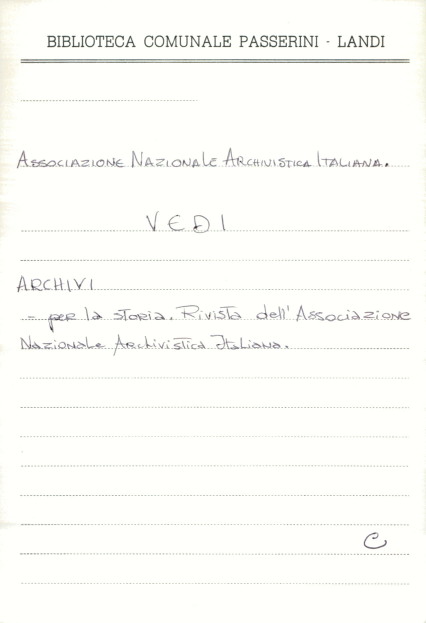 BIBLIOTECA COMUNALE PASSERINI - LANDI
Associazione Nazionale Archivistica Italiana.
VEDI
ARCHIVI
- per la storia. Rivista dell'Associazione
Nazionale Archivistica Italiana.
C